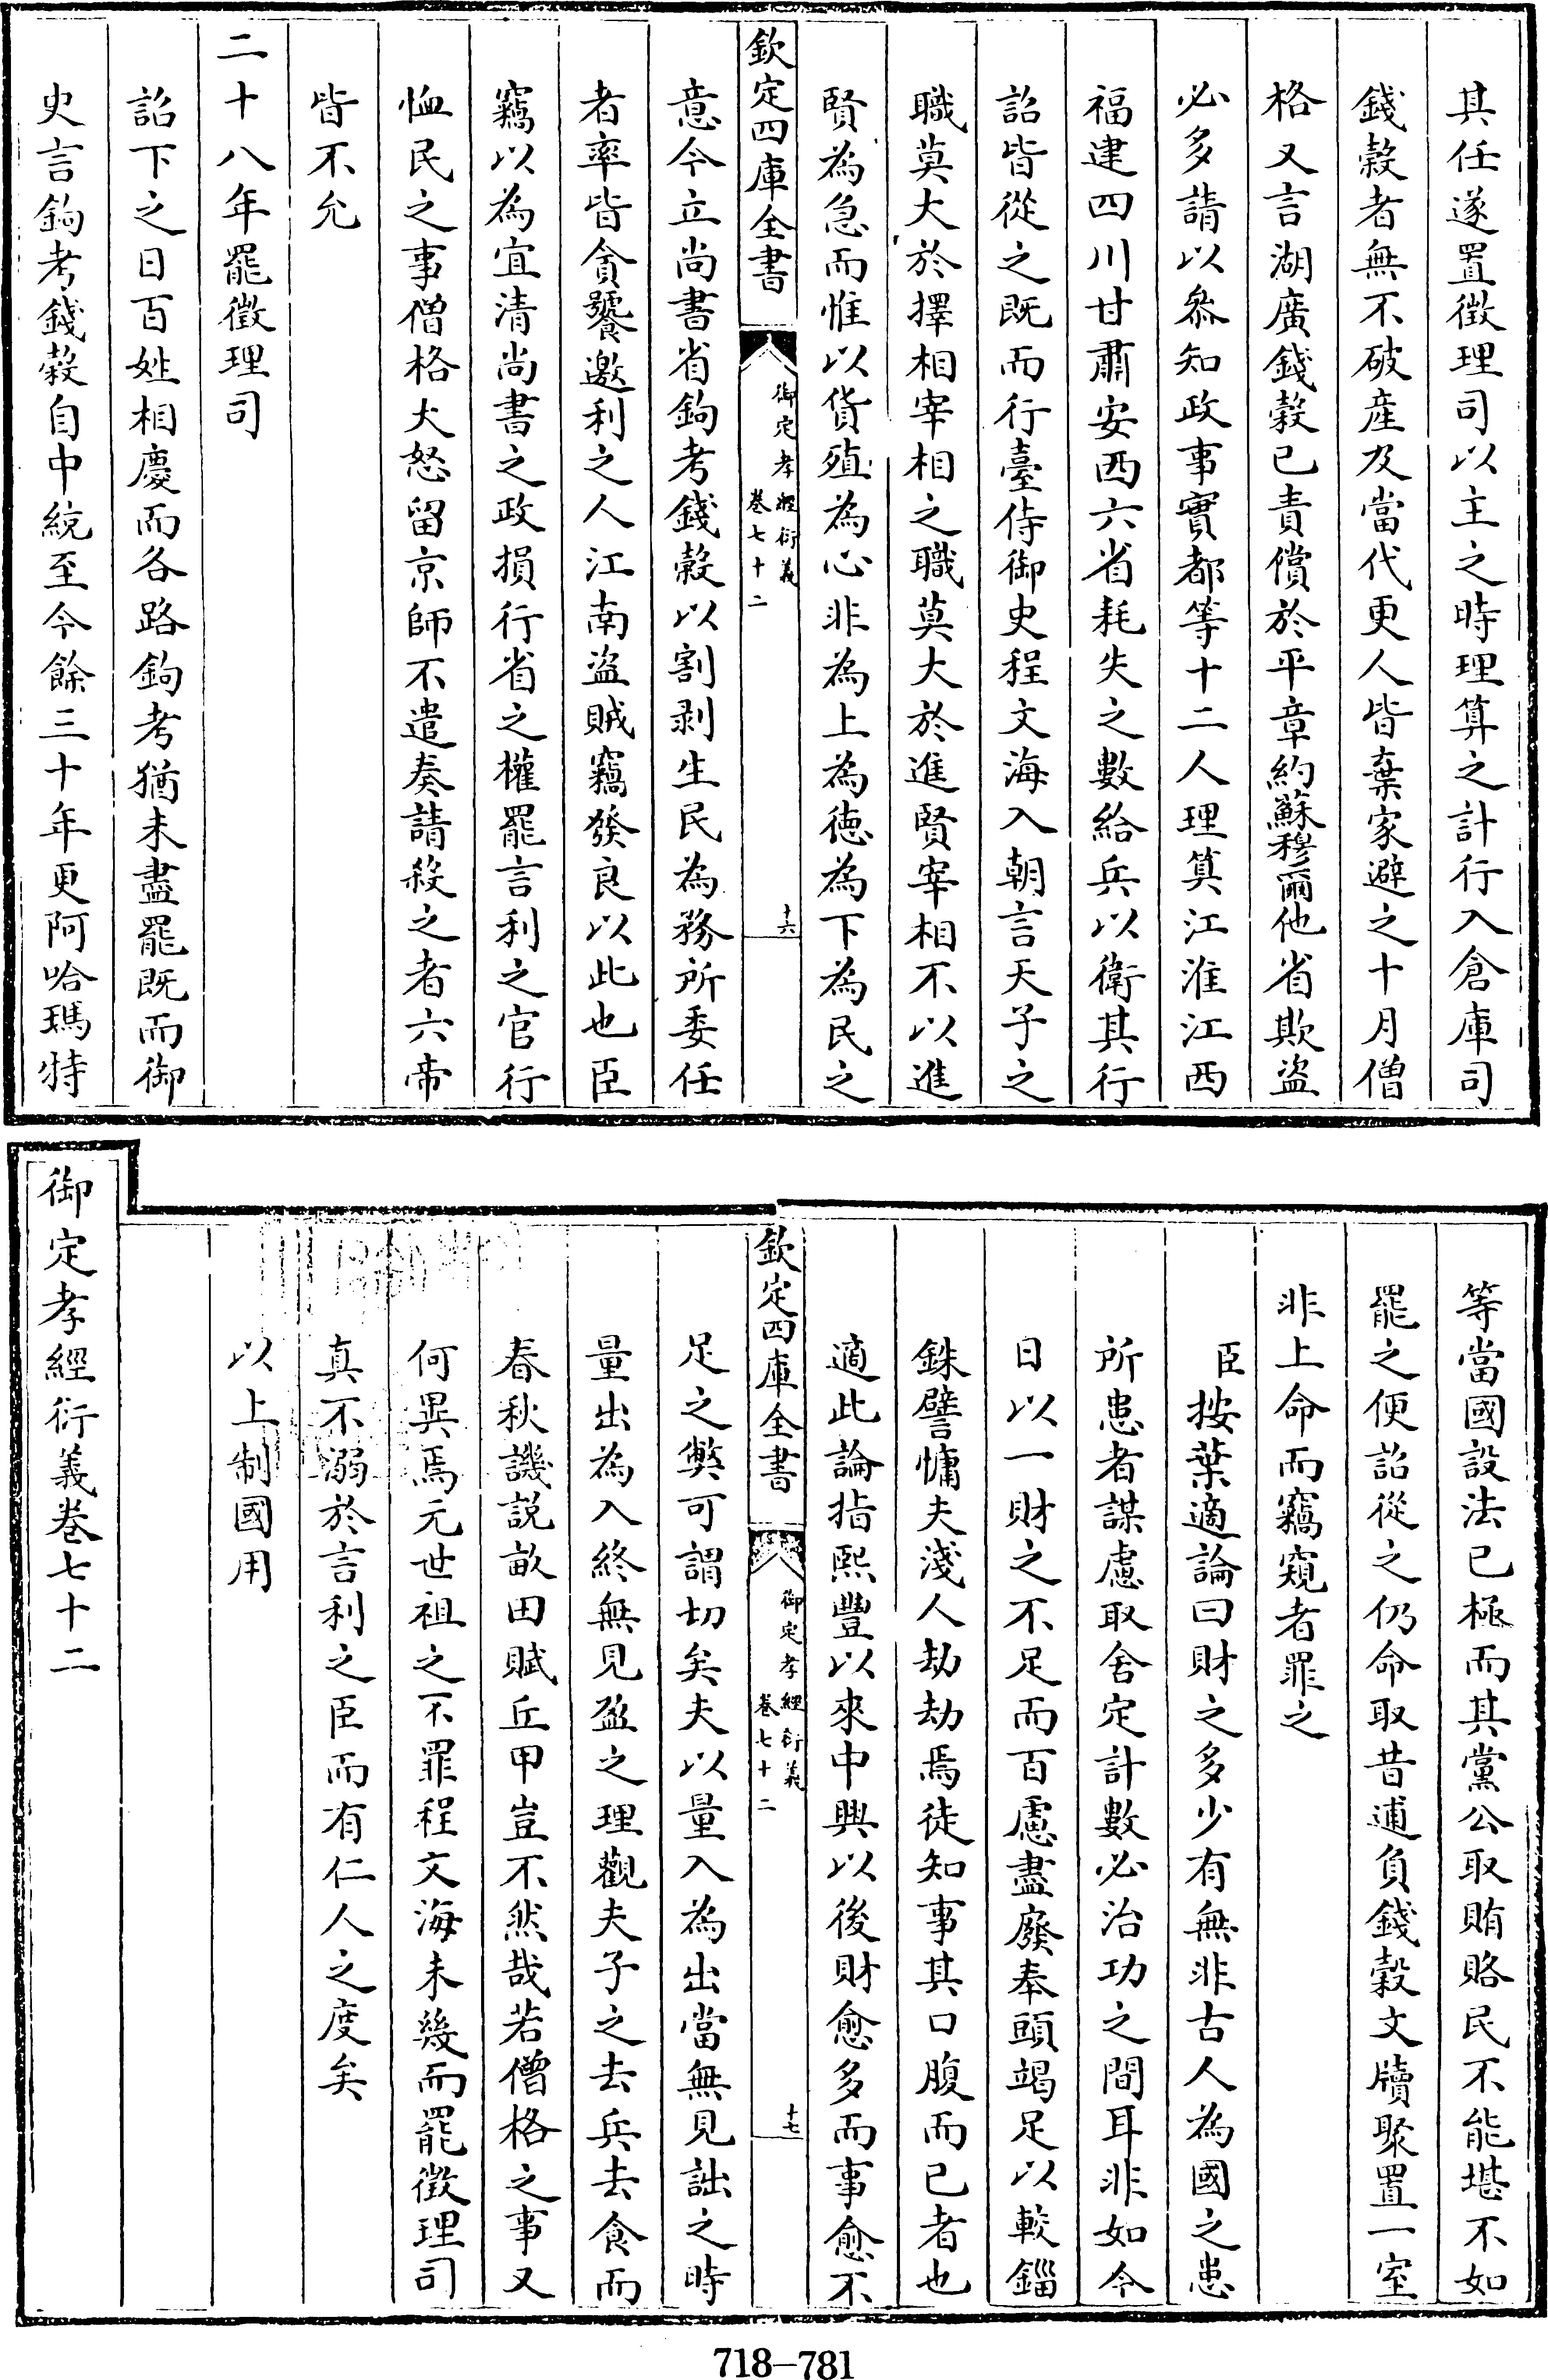 其任遂置徴理司以主之時理算之計行入倉庫司
錢榖者無不破産及當代更人皆棄家避之十月僧
格又言湖廣錢榖已責償於平章約蘇穆爾他省欺盜
必多請以叅知政事實都等十二人理算江淮江西
福建四川甘肅安西六省耗失之數給兵以衛其行
詔皆從之既而行臺侍御史程文海入朝言天子之
職莫大於擇相宰相之職莫大於進賢宰相不以進
賢為急而惟以貨殖為心非為上為徳為下為民之
欽定四庫全書
御定孝經衍義
卷七十二
十六
意今立尚書省鉤考錢榖以割剥生民為務所委任
者率皆貪饕邀利之人江南盜賊竊發良以此也臣
竊以為宜清尚書之政損行省之權罷言利之官行
恤民之事僧格大怒留京師不遣奏請殺之者六帝
皆不允
二十八年罷徴理司
詔下之日百姓相慶而各路鉤考猶未盡罷既而御
史言鉤考錢榖自中統至今餘三十年更阿哈瑪特
等當國設法已極而其黨公取賄賂民不能堪不如
罷之便詔從之仍命取昔逋負錢榖文牘聚置一室
非上命而竊窺者罪之
臣按葉適論曰財之多少有無非古人為國之患
所患者謀慮取舍定計數必治功之間耳非如今
日以一財之不足而百慮盡廢奉頭竭足以較錙
銖譬慵夫淺人劫劫焉徒知事其口腹而已者也
適此論指熙豐以來中興以後財愈多而事愈不
欽定四庫全書
御定孝經衍義
卷七十二
十七
足之弊可謂切矣夫以量入為出當無見詘之時
量出為入終無見盈之理觀夫子之去兵去食而
春秋譏説畝田賦丘甲豈不然哉若僧格之事又
何異焉元世祖之不罪程文海未幾而罷徴理司
真不溺於言利之臣而有仁人之度矣
以上制國用
御定孝經衍義卷七十二
718-781